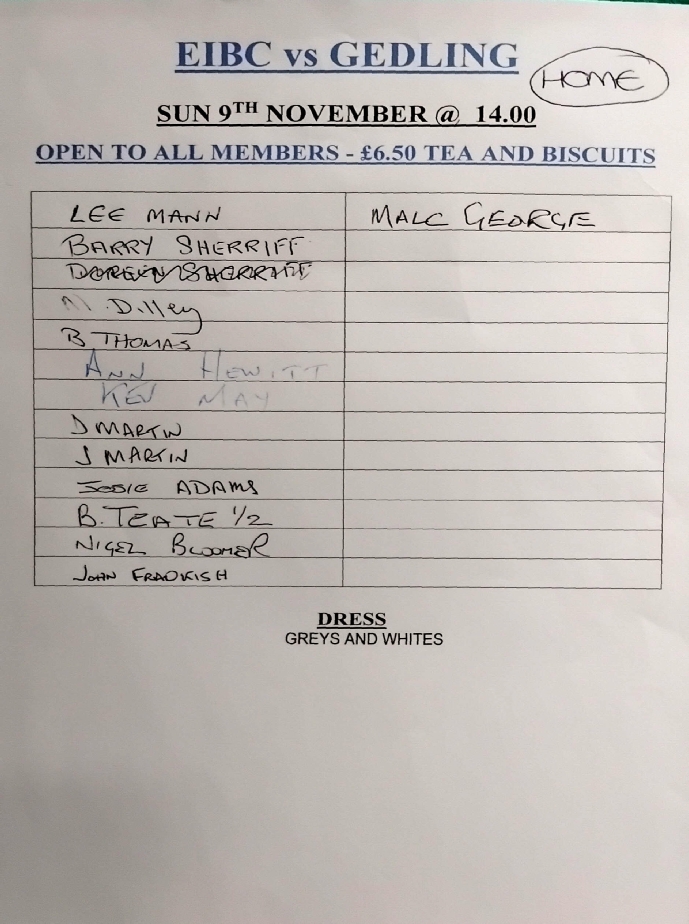 EIBC vs GEDLING
HOME
SUN 9TH NOVEMBER @ 14.00
OPEN TO ALL MEMBERS - £6.50 TEA AND BISCUITS
LEE MANN MALC GEORGE
BARRY SHERRIFF
DOREEN SHERRIFF
M. Dilley
B THOMAS
ANN HEWITT
KEV MAY
D MARTIN
J MARTIN
JOSIE ADAMS
B. TEATE 1/2
NIGEL BLOOMER
JOHN
DRESS
GREYS AND WHITES